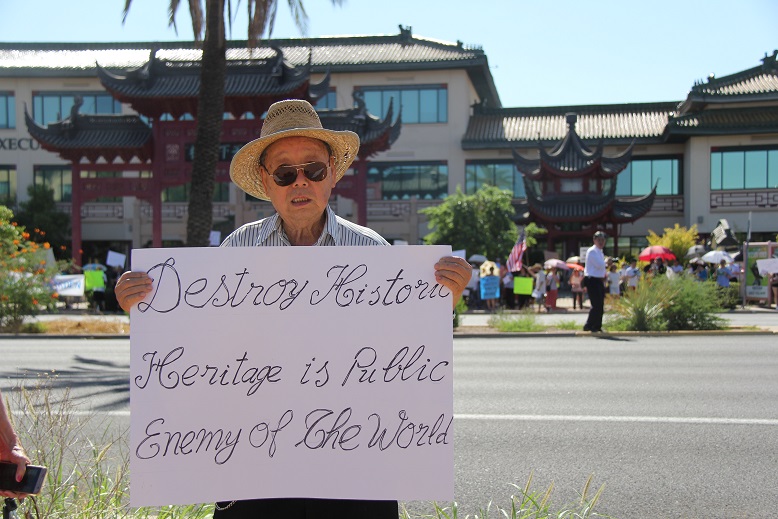 EXECU
Destroy Historic
Heritage is Public
Enemy of The World